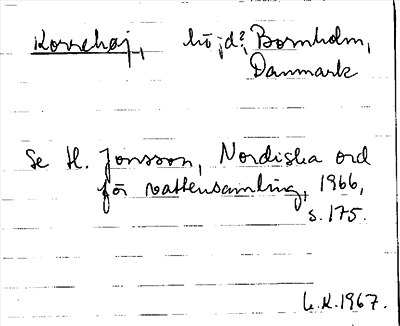 Korrehøj, höjd?, Bornholm,
Danmark
Se H. Jonsson, Nordiska ord
för vattensamling, 1966,
s. 175.
L.K. 1967.